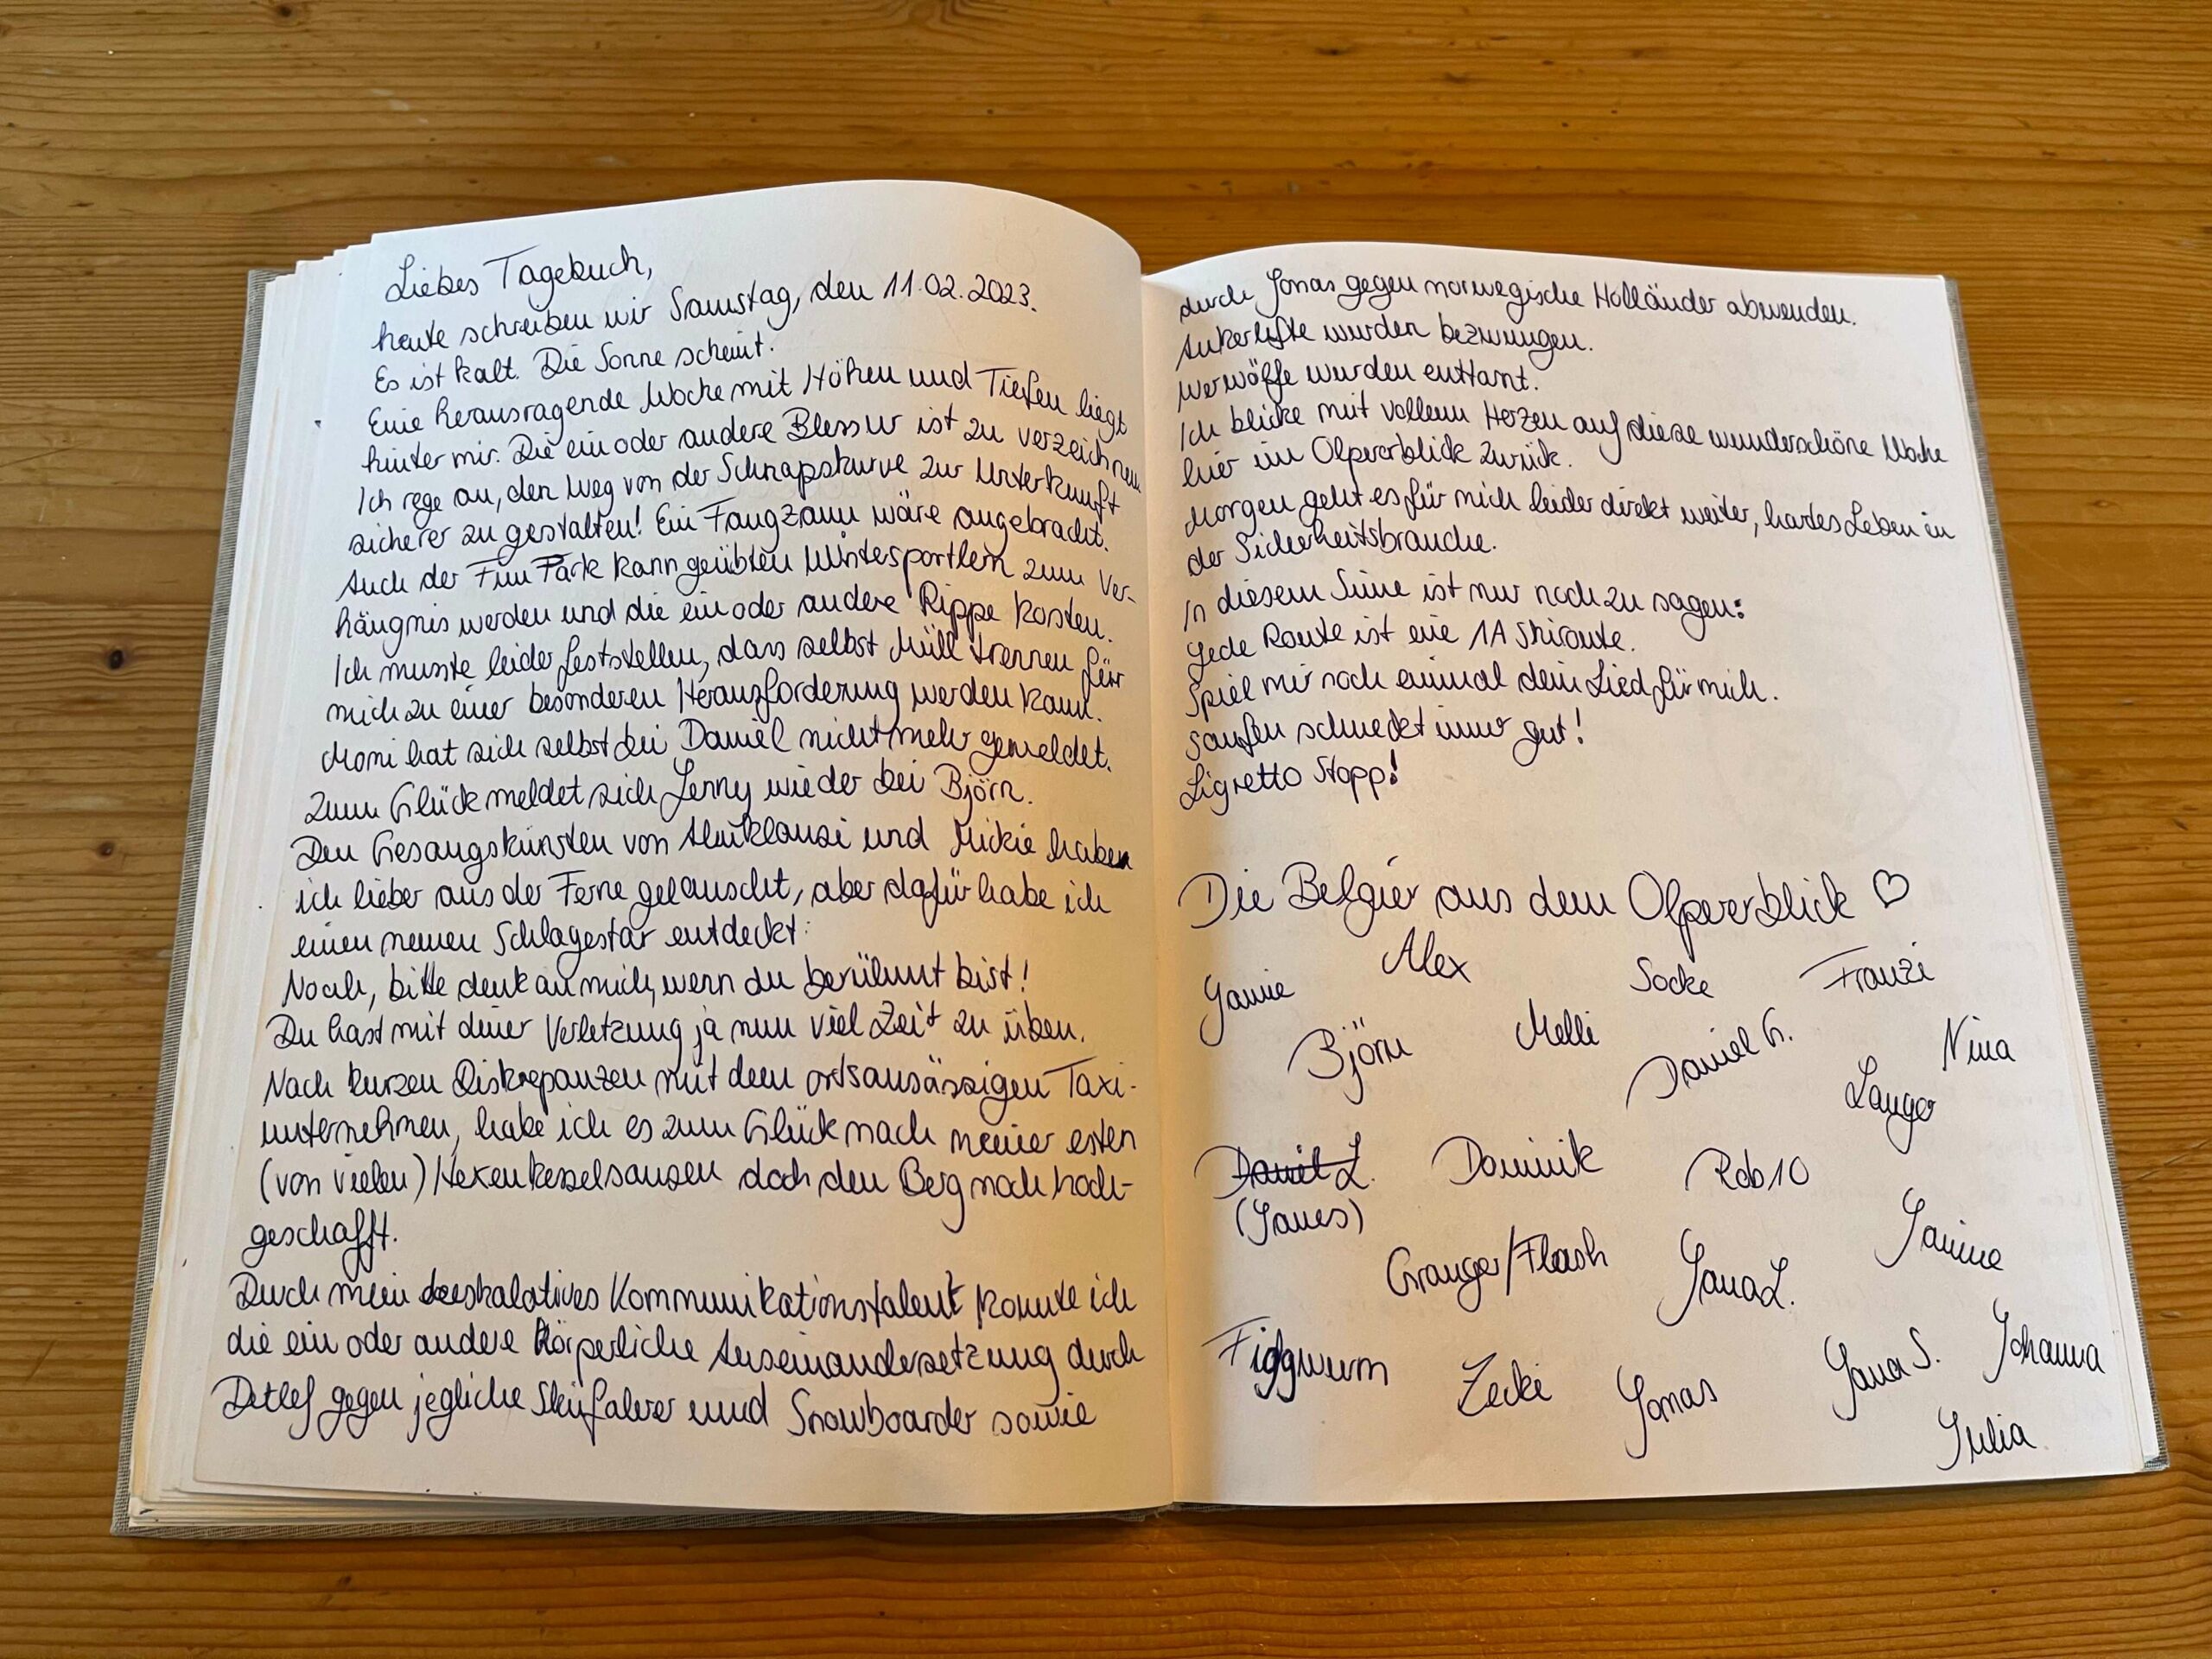 Liebes Tagebuch,
heute schreiben wir Samstag, den 11.02.2023.
Es ist kalt. Die Sonne scheint.
Eine herausragende Woche mit Höhen und Tiefen liegt
hinter mir. Die ein oder andere Blessur ist zu verzeichnen
Ich rege an, den Weg von der Schnapskurve zur Unterkunft
sicherer zu gestalten! Ein Fangzaun wäre angebracht.
Auch der Fun Park kann geübten Wintersportlern zum Ver-
hängnis werden und die ein oder andere Rippe kosten.
Ich musste leider feststellen, dass selbst Müll trennen für
mich zu einer besonderen Herausforderung werden kann.
Moni hat sich selbst bei Daniel nicht mehr gemeldet.
Zum Glück meldet sich Jenny wieder bei Björn.
Den Gesangskünsten von Almklausi und Mickie haben
ich lieber aus der Ferne gelauscht, aber dafür habe ich
einen neuen Schlagestar entdeckt:
Noah, bitte denk an mich, wenn du berühmt bist!
Du hast mit deiner Verletzung ja nun viel Zeit zu üben.
Nach kurzen Diskrepanzen mit dem ortsansässigen Taxi-
unternehmen, habe ich es zum Glück nach meiner esten
(von vielen) Hexenkesselsausen doch den Berg noch hoch-
geschafft.
Durch mein deeskalatives Kommunikationstalent konnte ich
die ein oder andere körperliche Auseinandersetzung durch
Detlef gegen jegliche Skifahrer und Snowboarder sowie
durch Jonas gegen norwegische Holländer abwenden.
Ankerlifte wurden bezwungen.
Werwölfe wurden enttarnt.
Ich blicke mit vollem Herzen auf diese wunderschöne Woche
hier im Olpererblick zurück.
Morgen geht es für mich leider direkt weiter, hartes Leben in
der Sicherheitsbranche.
In diesem Sinne ist nur noch zu sagen:
Jede Route ist eine 1A Skiroute.
Spiel mir noch einmal dein Lied für mich.
Saufen schmeckt immer gut!
Ligretto Stopp!
Die Belgier aus dem Olpererblick ♡
Alex
Socke
Franzi
Björn
Melli
Daniel G.
Nina
Langer
Daniel L.
(James)
Dominik
Rob10
Granger/Flash
Jana L.
Janine
Figgwurm
Zecke
Jonas
Jana S.
Johanna
Julia